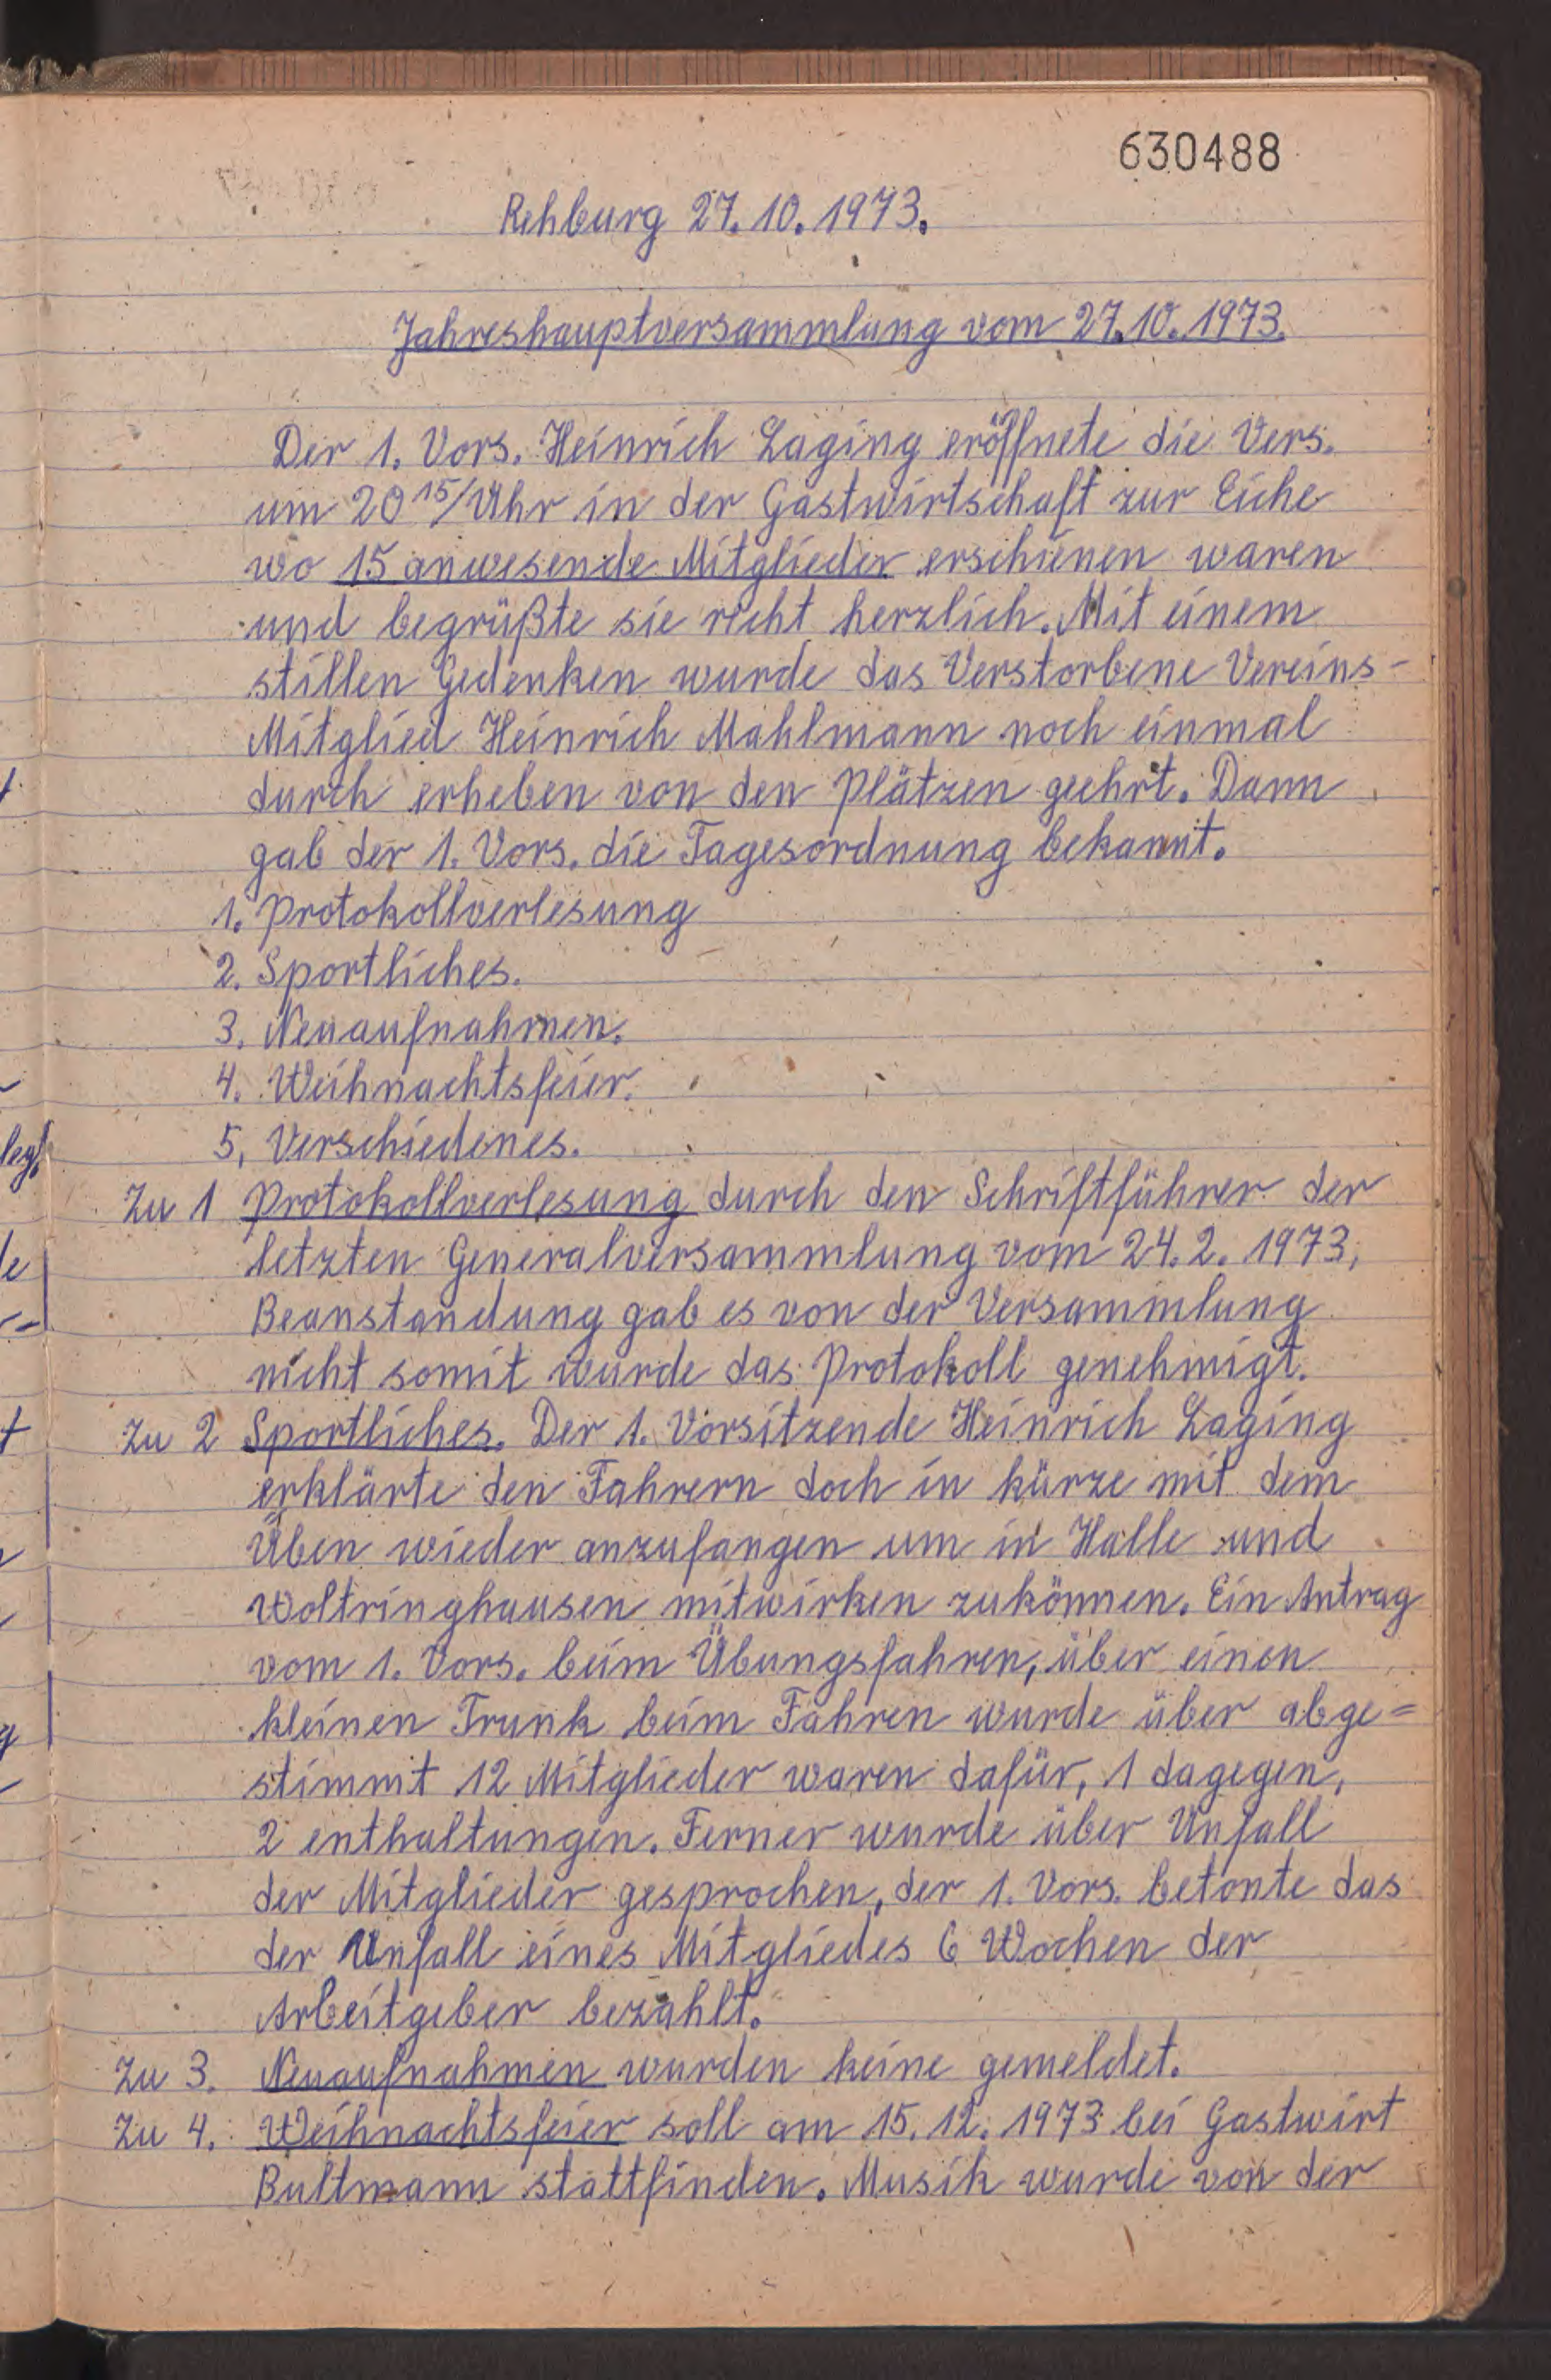 630488
Rehburg 27.10.1973.
Jahreshauptversammlung vom 27.10.1973.
Der 1. Vors. Heinrich Laging eröffnete die Vers.
um 20 15/Uhr in der Gastwirtschaft zur Eiche
wo 15 anwesende Mitglieder erschienen waren
und begrüßte sie recht herzlich. Mit einem
stillen Gedenken wurde das Verstorbene Vereins-
Mitglied Heinrich Mahlmann noch einmal
durch erheben von den Plätzen geehrt. Dann
gab der 1. Vors. die Tagesordnung bekannt.
1. Protokollverlesung
2. Sportliches.
3. Neuaufnahmen.
4. Weihnachtsfeier.
5. Verschiedenes.
Zu 1 Protokollverlesung durch den Schriftführer der
letzten Generalversammlung vom 24.2.1973,
Beanstandung gab es von der Versammlung
nicht somit wurde das Protokoll genehmigt.
Zu 2 Sportliches. Der 1. Vorsitzende Heinrich Laging
erklärte den Fahrern doch in kürze mit dem
Üben wieder anzufangen um in Halle und
Woltringhausen mitwirken zukönnen. Ein Antrag
vom 1. Vors. beim Übungsfahren, über einen
kleinen Trunk beim Fahren wurde über abge=
stimmt 12 Mitglieder waren dafür, 1 dagegen,
2 enthaltungen. Ferner wurde über Unfall
der Mitglieder gesprochen, der 1. Vors. betonte das
der Unfall eines Mitgliedes 6 Wochen der
Arbeitgeber bezahlt.
Zu 3. Neuaufnahmen wurden keine gemeldet.
Zu 4. Weihnachtsfeier soll am 15.12.1973 bei Gastwirt
Bultmann stattfinden. Musik wurde von der